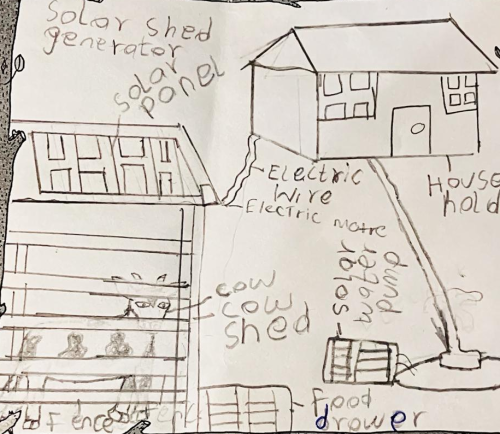 Solar shed
generator
solar
panel
Electric
wire
Electric motre
House
hold
solar
water
pump
cow
cow
shed
Food
drower
Fence